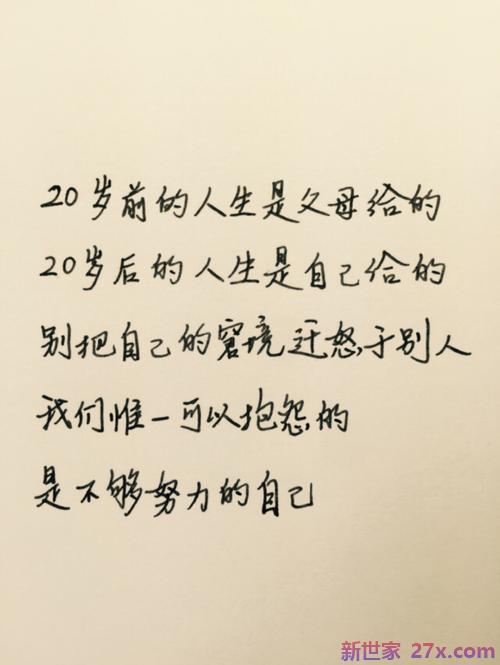 20岁前的人生是父母给的
20岁后的人生是自己给的
别把自己的窘境迁怒于别人
我们惟一可以抱怨的
是不够努力的自己
新世家 27x.com